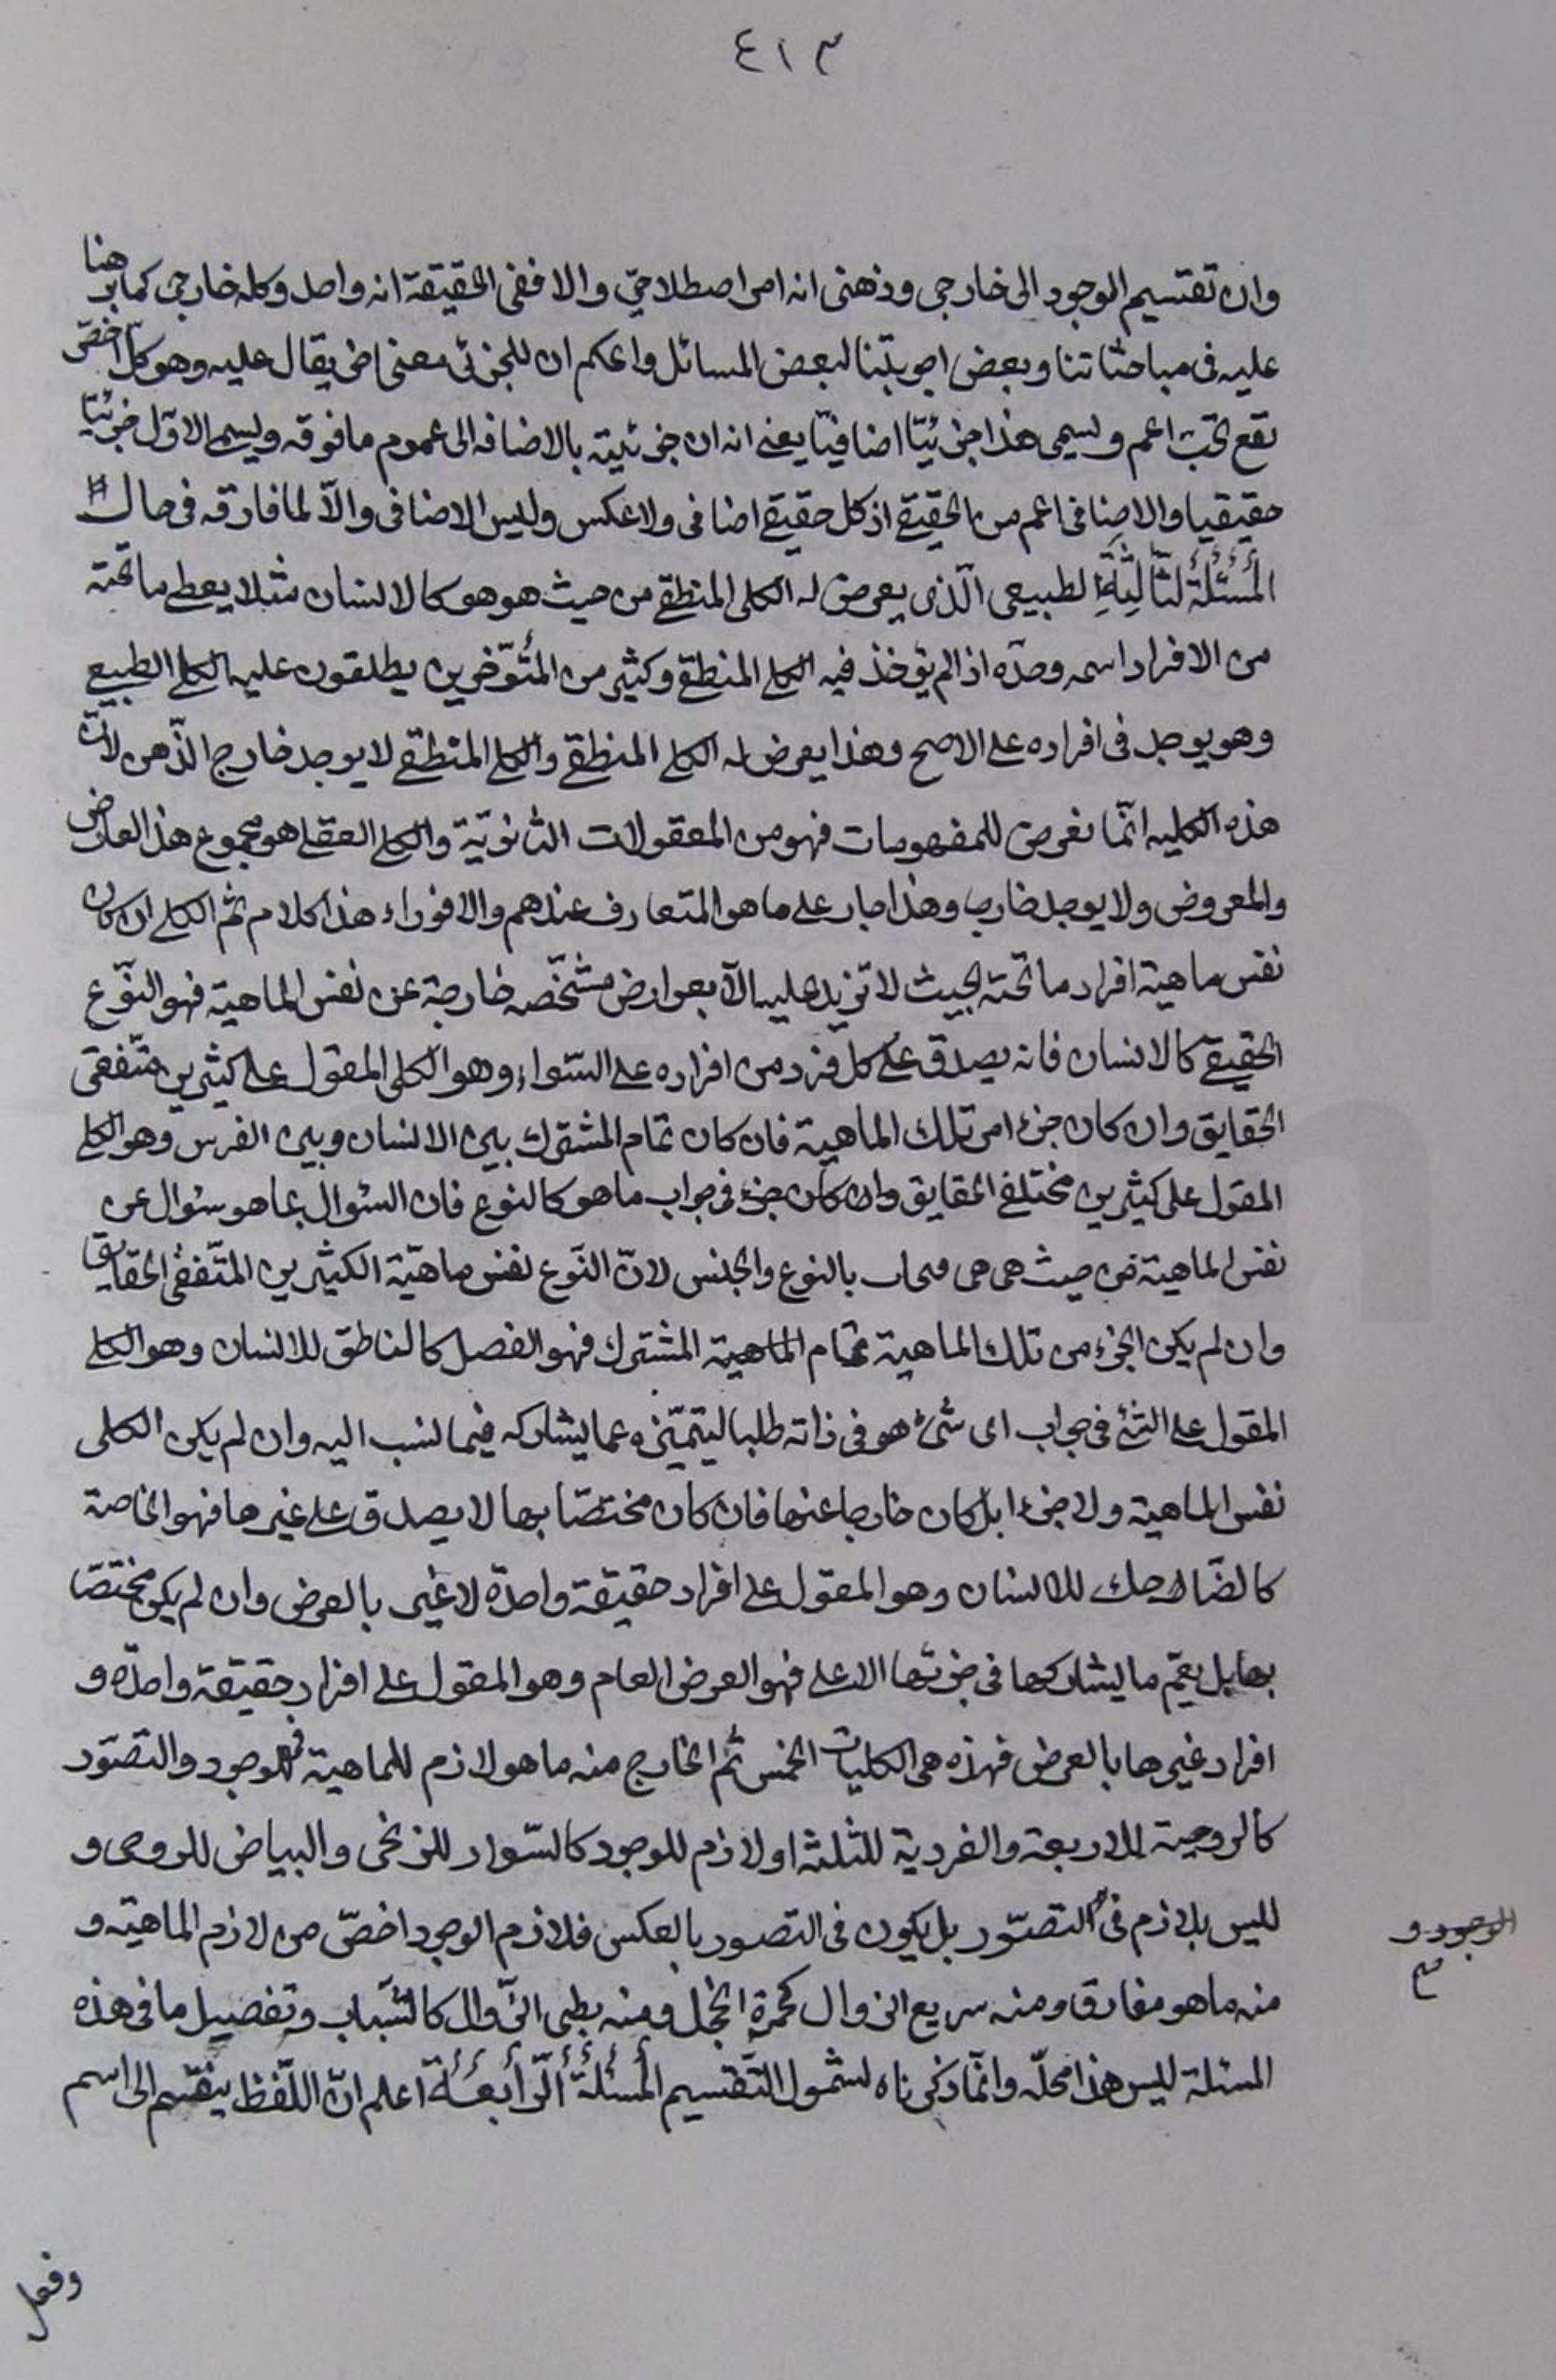 ٤١٣
وان تقسيم الوجود الى خارجى وذهنى انه امر اصطلاحىّ والا ففى الحقيقة انه واحد وكله خارجى كما برهنا
عليه فى مباحثاتنا وبعض اجوبتنا لبعض المسائل واعلم ان للجزئى معنى اخر يقال عليه وهو كلّ اخصّ
تقع تحت اعم ويسمى هذا جزئيّا اضافيّا يعنى انه ان جزئيته بالاضافه الى عموم ما فوقه ويسمى الاوّل جزئيّا
حقيقيا والاضافى اعم من الحقيقے اذ كل حقيقے اضافى ولا عكس وليس الاضافى والاّ لما فارقه فى حال
المسئلة الثالثة الطبيعى الّذى يعرض له الكلى المنطقے من حيث هو هو كالانسان مثلا يعطى ما تحته
من الافراد اسمه وحدّه اذ الم يؤخذ فيه الكلے المنطقے وكثير من المتؤخرين يطلقون عليه الكلے الطبيعے
وهو يوجد فى افراده على الاصح وهذا يعرض له الكلے المنطقے والكلے المنطقے لا يوجد خارج الذّهن لانّ
هذه الكليه انّما تعرض للمفهومات فهو من المعقولات الثانويّة والكلے العقلے هو مجموع هذ العارض
والمعروض ولا يوجد خارجا وهذا جار على ما هو المتعارف عندهم والا فوراء هذا كلام ثم الكلے ان كان
نفس ماهية افراد ما تحته بحيث لا تزيد عليه الاّ بعوارض مشخّصه خارجة عن نفس الماهية فهو النّوع
الحقيقے كالانسان فانه يصدق على كل فرد من افراده على السّواء وهو الكلى المقول على كثيرين متّفقى
الحقايق وان كان جزءا من تلك الماهية فان كان تمام المشترك بين الانسان وبين الفرس وهو الكلے
المقول على كثيرين مختلفے الحقايق وان كان جزء فى جواب ما هو كالنوع فان السئوال بما هو سئوال عن
نفس الماهية من حيث هى هى فيجاب بالنوع والجنس لانّ النّوع نفس ماهيّة الكثيرين المتّفقى الحقايق
وان لم يكن الجزء من تلك الماهية تمام الماهية المشترك فهو الفصل كالناطق للانسان وهو الكلے
المقول على الشئ فى جواب اى شئ هو فى ذاته طلبا ليتميّزه عما يشاركه فيما نسب اليه وان لم يكن الكلى
نفس الماهية ولا جزءا بل كان خارجا عنها فان كان مختصّا بها لا يصدق على غيرها فهو الخاصة
كالضّاحك للانسان وهو المقول على افراد حقيقة واحدة لا غير بالعرض وان لم يكن مختصّا
بها بل يعمّ ما يشاركها فى جزئها الاعلى فهو العرض العام وهو المقول على افراد حقيقة واحدة و
افراد غيرها بالعرض فهذه هى الكليات الخمس ثم الخارج منه ما هو لازم للماهية فى الوجود والتصّور
كالزوجية للاربعة والفردية للثلثة او لازم للوجود كالسّواد للزنجى والبياض للرومى و
لليس بلازم فى التصّور بل يكون فى التصور بالعكس فلازم الوجود اخصّ من لازم الماهيّه و
الوجود و
منه ما هو مفارق ومنه سريع الزوال كحمرة الخجل ومنه بطى الزّوال كالشّباب وتفصيل ما فى هذه
المسئلة ليس هذا محلّه وانّما ذكرناه لشمول التّقسيم المسئلة الرّابعة اعلم انّ اللّفظ ينقسم الى اسم
وفعل